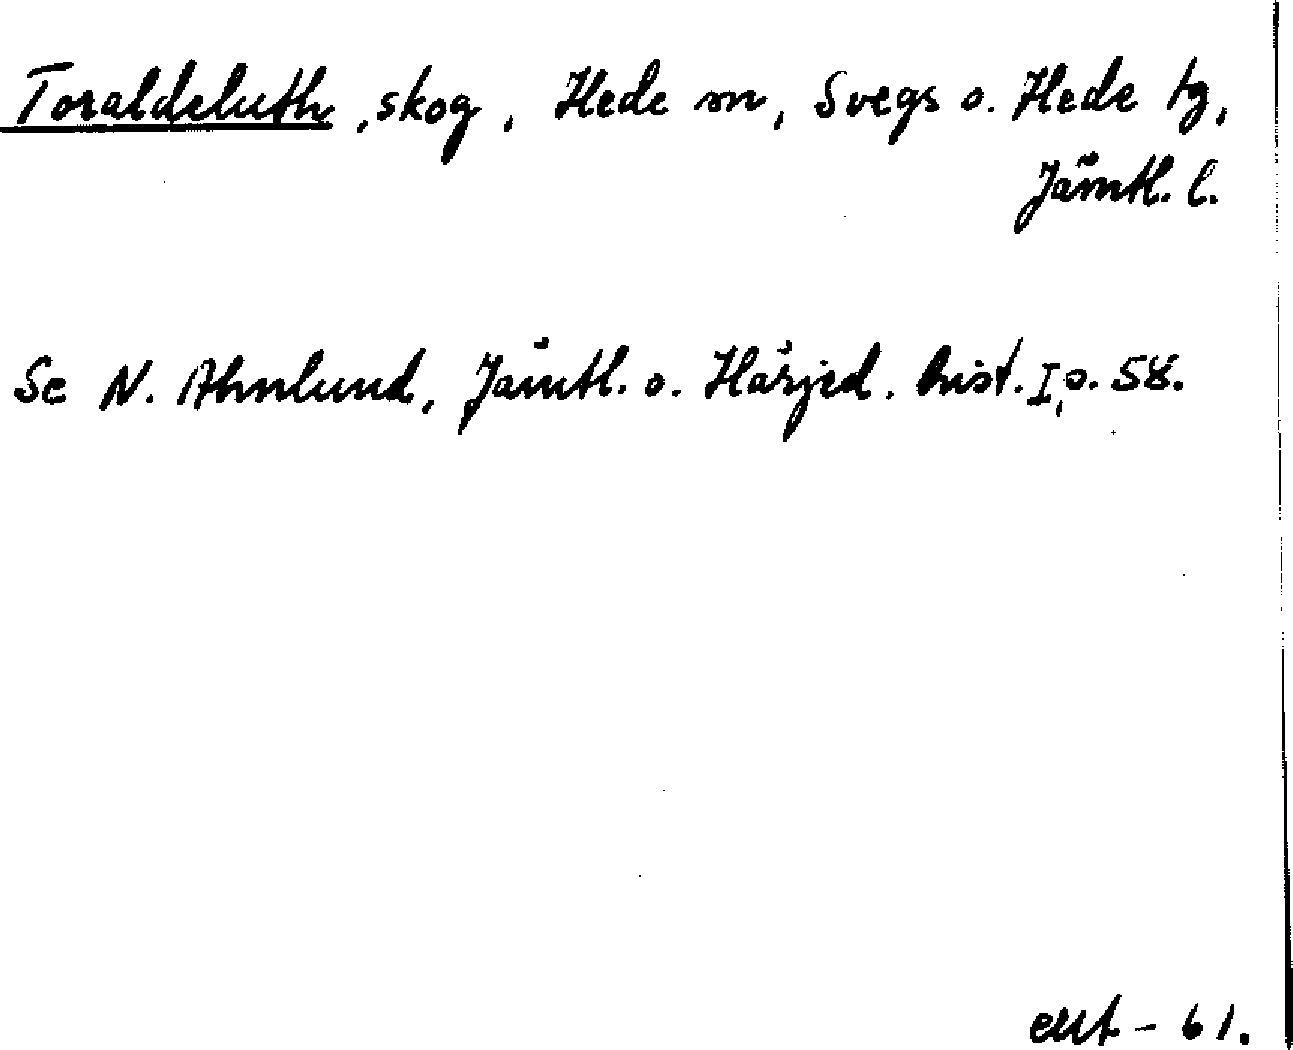 Toraldeluth, skog, Hede sn, Svegs o. Hede tg,
Jämtl. l.
Se N. Ahnlund, Jämtl. o. Härjed. hist. I, s. 58.
exc - 61.